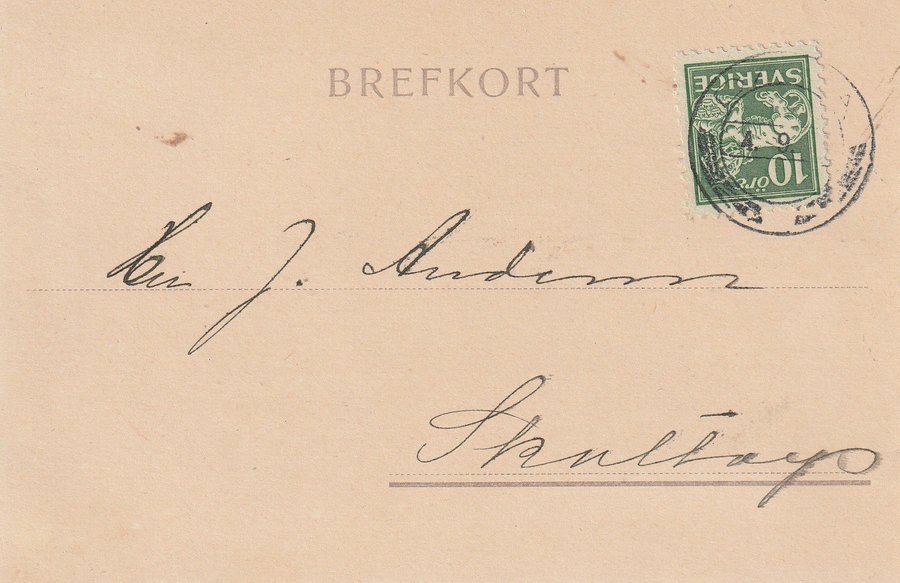 BREFKORT
SVERIGE
10 öre
4 9
Herr J. Anderson
Skultorp